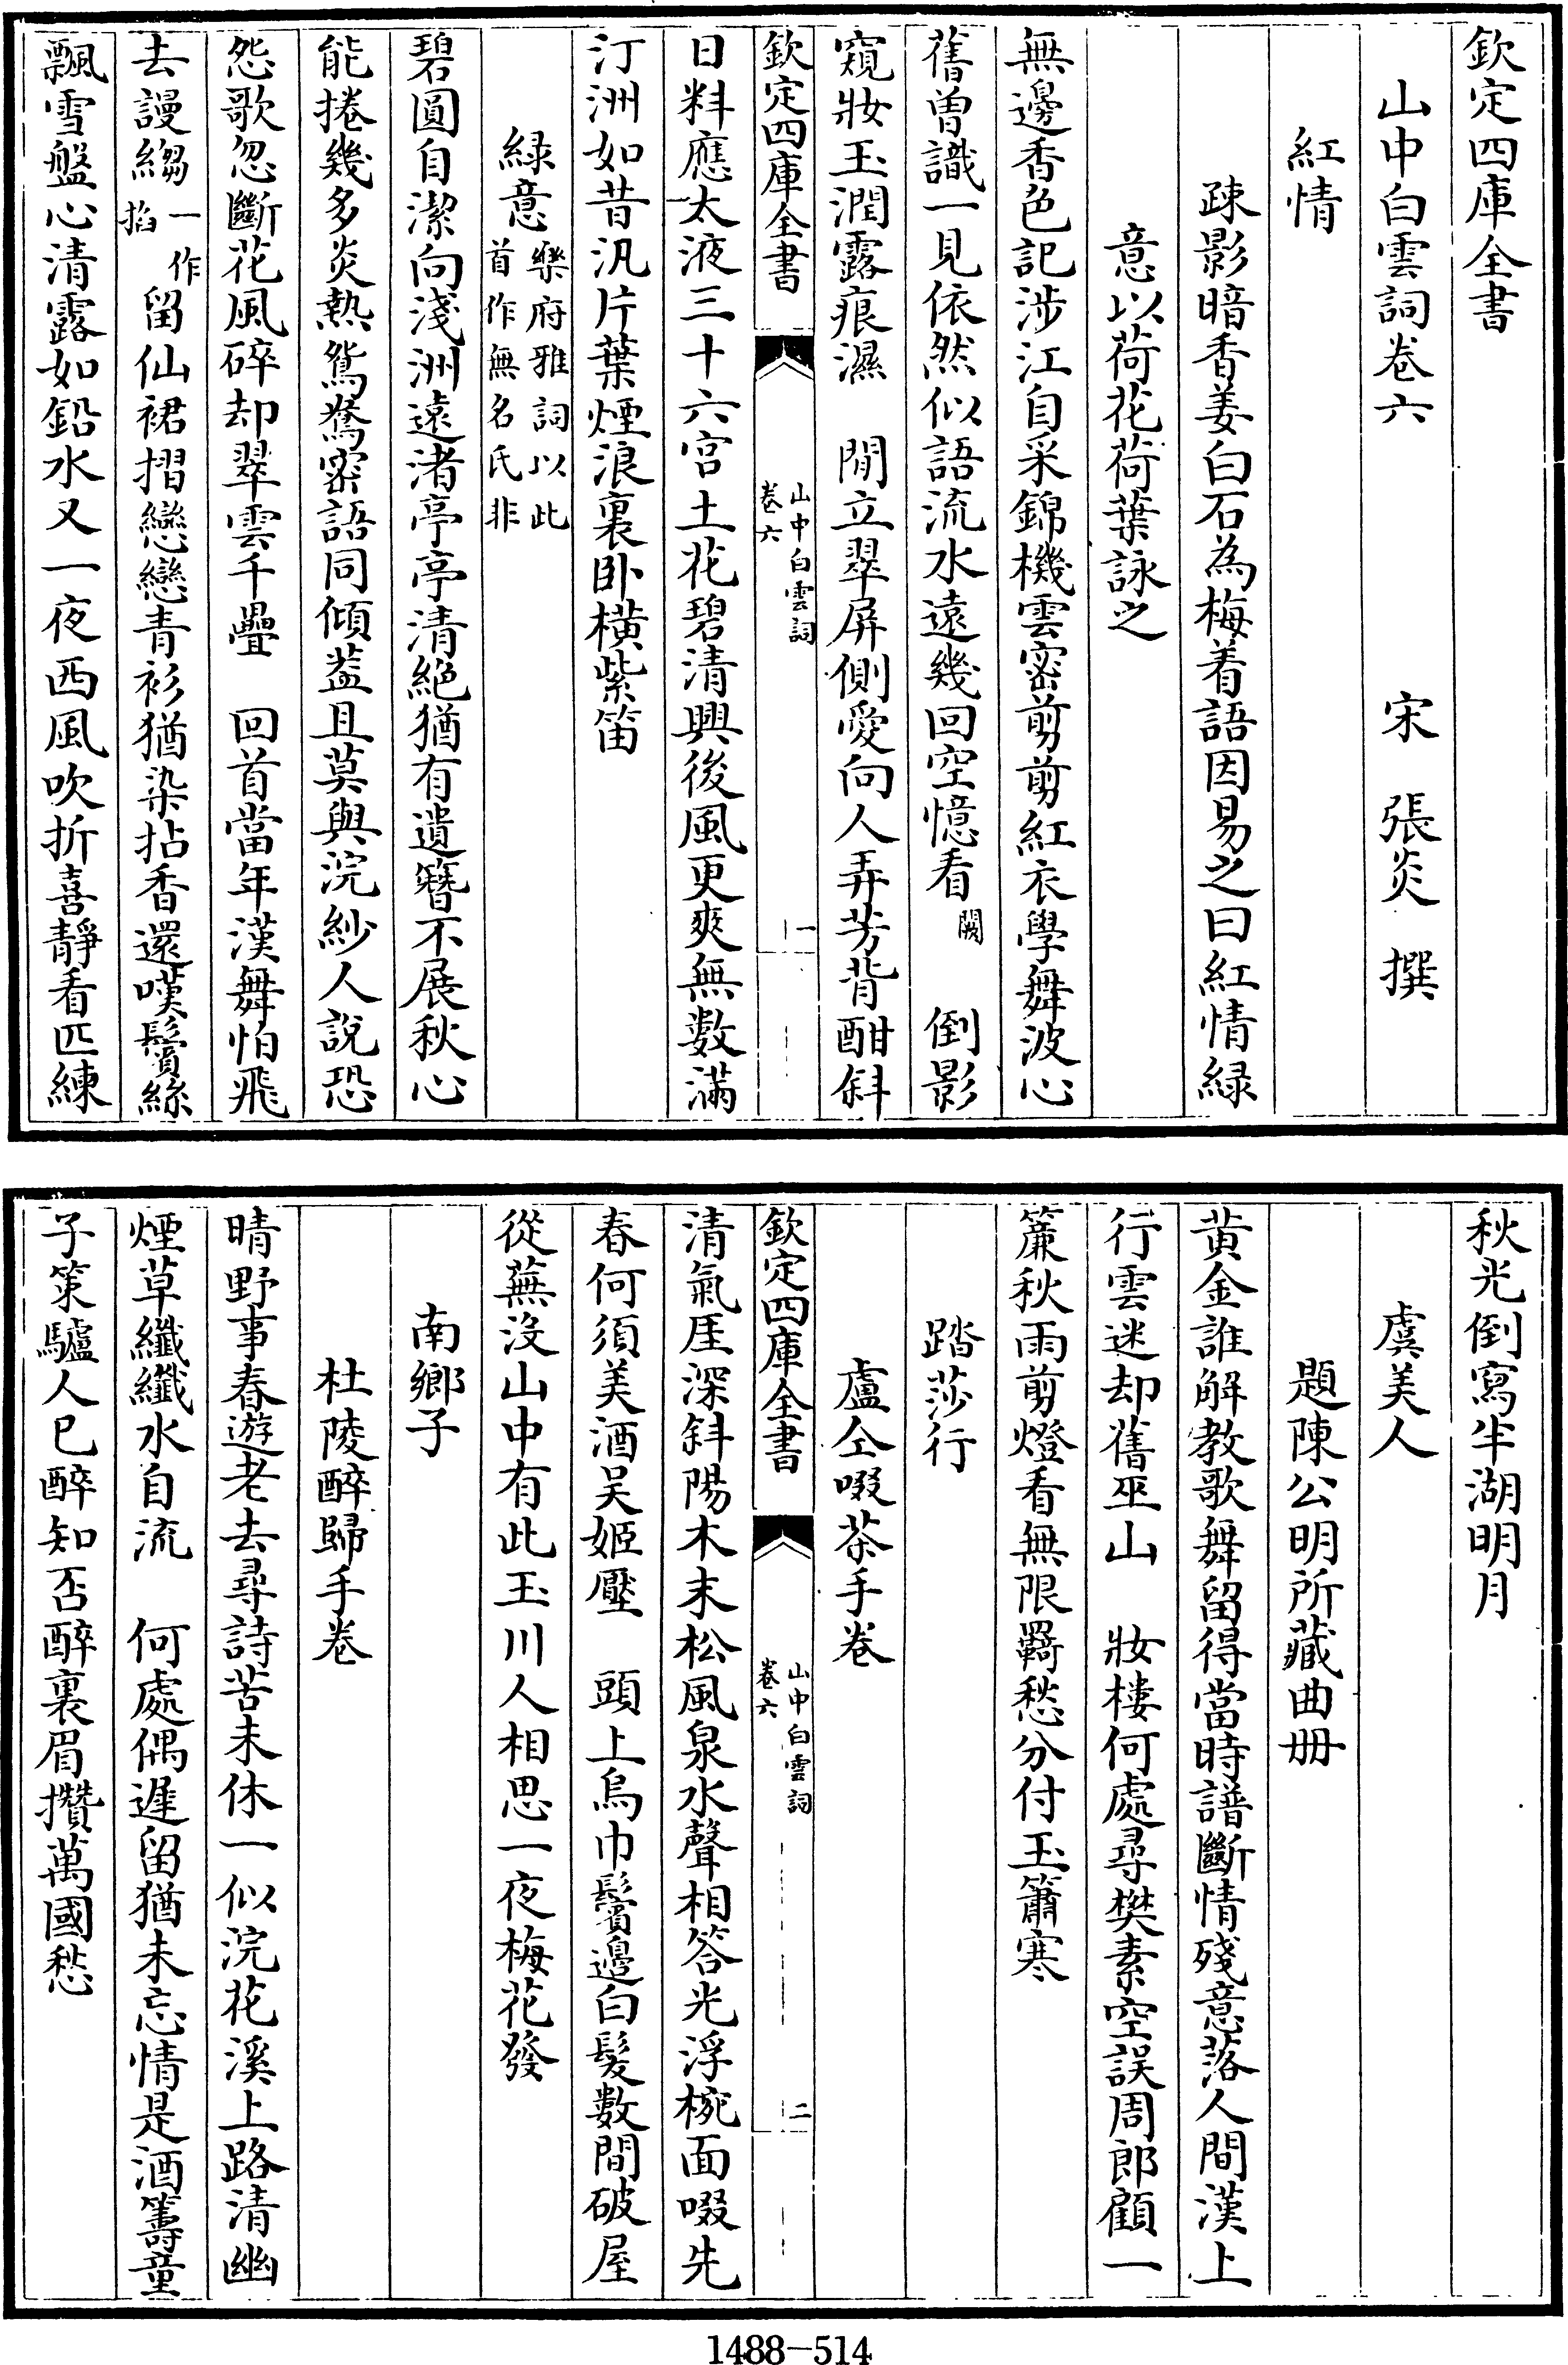 欽定四庫全書
山中白雲詞卷六　宋　張炎　撰
紅情
疎影暗香姜白石為梅着語因易之曰紅情緑
意以荷花荷葉詠之
無邊香色記涉江自采錦機雲密剪剪紅衣學舞波心
舊曽識一見依然似語流水遠幾回空憶看闕　倒影
窺妝玉潤露痕濕　閒立翠屏側愛向人弄芳背酣斜
欽定四庫全書
山中白雲詞
卷六
一
日料應太液三十六宮土花碧清興後風更爽無數滿
汀洲如昔汎片葉煙浪裏卧橫紫笛
緑意樂府雅詞以此首作無名氏非
碧圓自潔向淺洲遠渚亭亭清絕猶有遺簪不展秋心
能捲幾多炎熱鴛鴦密語同傾葢且莫與浣紗人說恐
怨歌忽斷花風碎却翠雲千疊　回首當年漢舞怕飛
去謾縐一作掐留仙裙摺戀戀青衫猶染拈香還嘆鬢絲
飄雪盤心清露如鉛水又一夜西風吹折喜靜看匹練
秋光倒寫半湖明月
虞美人
題陳公明所藏曲冊
黄金誰解教歌舞留得當時譜斷情殘意落人間漢上
行雲迷却舊巫山　妝樓何處尋樊素空誤周郎顧一
簾秋雨剪燈看無限羇愁分付玉簫寒
踏莎行
盧仝啜茶手卷
欽定四庫全書
山中白雲詞
卷六
二
清氣厓深斜陽木末松風泉水聲相答光浮椀面啜先
春何須美酒吴姬壓　頭上烏巾鬢邊白髪數間破屋
從蕪沒山中有此玉川人相思一夜梅花發
南鄉子
杜陵醉歸手卷
晴野事春遊老去尋詩苦未休一似浣花溪上路清幽
煙草纖纖水自流　何處偶遲留猶未忘情是酒籌童
子策驢人已醉知否醉裏眉攢萬國愁
1488—514